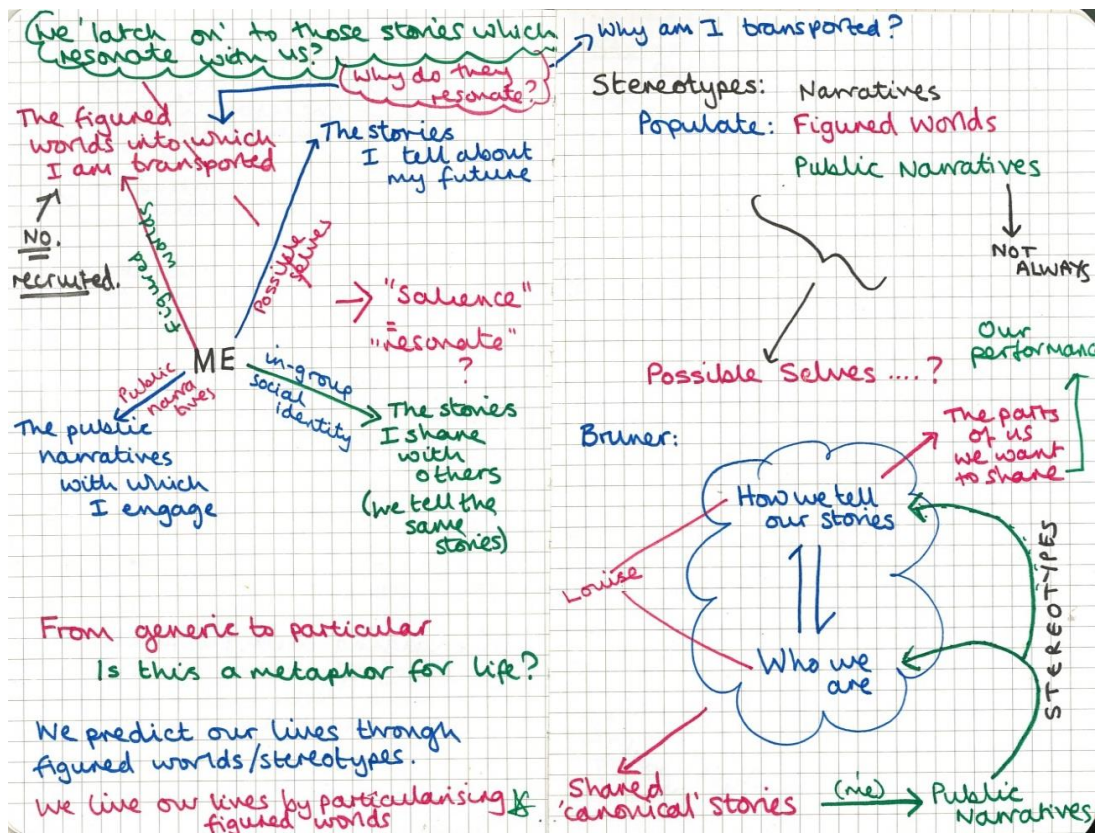 (We 'latch on' to those stories which
resonate with us?
Why do they
resonate?
The figured
worlds into which
I am transported
NO.
recruited.
The stories
I tell about
my future
Figured worlds
Possible selves
"Salience"
=
"resonate"
?
ME
Public
narra
tives
in-group
social
identity
The public
narratives
with which
I engage
The stories
I share
with
others
(we tell the
same
stories)
From generic to particular
Is this a metaphor for life?
We predict our lives through
figured worlds/stereotypes.
We live our lives by particularising
figured worlds
Why am I transported?
Stereotypes: Narratives
Populate: Figured Worlds
Public Narratives
NOT
ALWAYS
Possible Selves ....?
Our
performance
Bruner:
The parts
of us
we want
to share
How we tell
our stories
Louise
Who we
are
STEREOTYPES
Shared
'canonical' stories
(me)
Public
Narratives